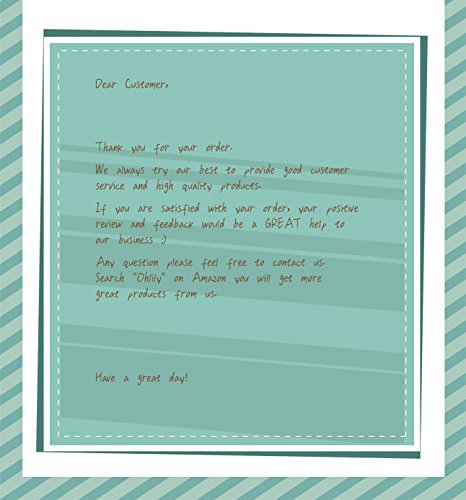 Dear Customer,
Thank you for your order.
We always try our best to provide good customer
service and high quality products.
If you are satisfied with your order, your positive
review and feedback would be a GREAT help to
our business :)
Any question please feel free to contact us.
Search "Ohlily" on Amazon you will get more
great products from us.
Have a great day!